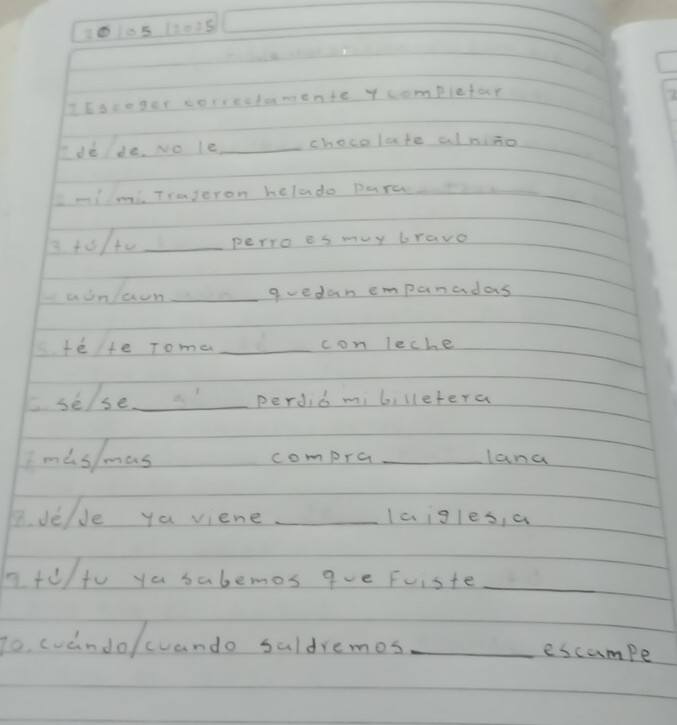 20/05/2025
I Escoger correctamente y completar
1 dé/de. No le ______ chocolate al niño
2 mí/mi. Trajeron helado para ______
3 tú/tu ______ perro es muy bravo
aún/aun ______ quedan empanadas
5. té/te Toma ______ con leche
6. sé/se ______ perdió mi billetera
7 más/mas compra ______ lana
8. dé/de ya viene ______ la iglesia
9. tú/tu ya sabemos que Fuiste ______
10. cuándo/cuando saldremos ______ escampe